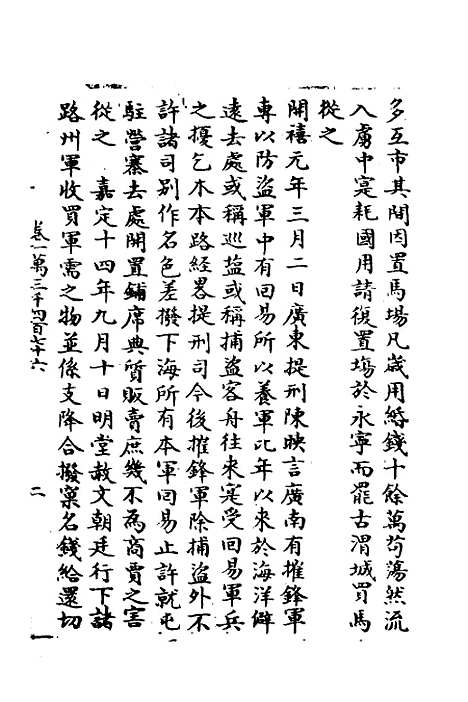 多互市其間因置馬場凡歲用緡錢十餘萬茍蕩然流
入虜中寔耗國用請復置塲於永寧而罷古渭城買馬
從之
開禧元年三月二日廣東提刑陳映言廣南有摧鋒軍
專以防盜軍中有回易所以養軍比年以來於海洋僻
遠去處或稱巡塩或稱捕盜客舟往來寔受回易軍兵
之擾乞本路經畧提刑司今後摧鋒軍除捕盜外不
許諸司别作名色差撥下海所有本軍回易止許就屯
駐營寨去處開置鋪席典質販賣庶幾不爲商賈之害
從之 嘉定十四年九月十日明堂赦文朝廷行下諸
路州軍收買軍需之物並係支降合撥窠名錢給還切
卷一萬三千四百七十六
二